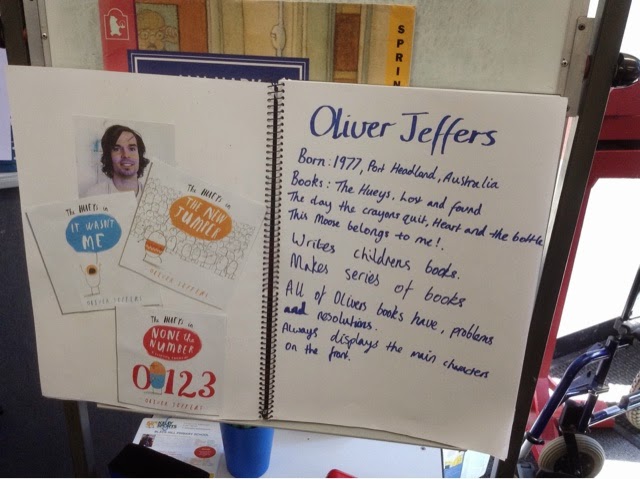 SPRIN
The HUEYS in
IT WASN'T
ME
OLIVER JEFFERS
The HUEYS in
THE NEW
JUMPER
OLIVER JEFFERS
The HUEYS in
NONE THE
NUMBER
0123
OLIVER JEFFERS
Oliver Jeffers
Born: 1977, Port Headland, Australia
Books: The Hueys, Lost and found
The day the crayons quit, Heart and the bottle
This Moose belongs to me!.
Writes childrens books.
Makes series of books
All of Olivers books have, problems
and resolutions.
Always displays the main characters
on the front.